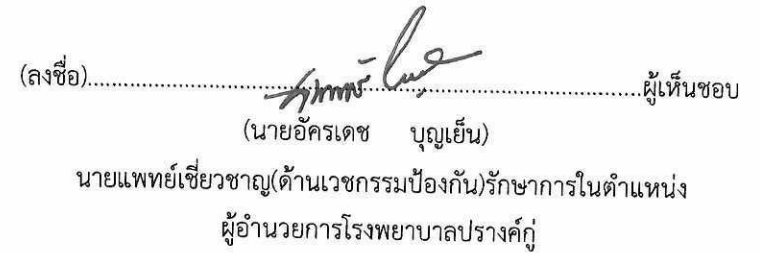 (ลงชื่อ)..........................................................................................ผู้เห็นชอบ
(นายอัครเดช บุญเย็น)
นายแพทย์เชี่ยวชาญ(ด้านเวชกรรมป้องกัน)รักษาการในตำแหน่ง
ผู้อำนวยการโรงพยาบาลปรางค์กู่